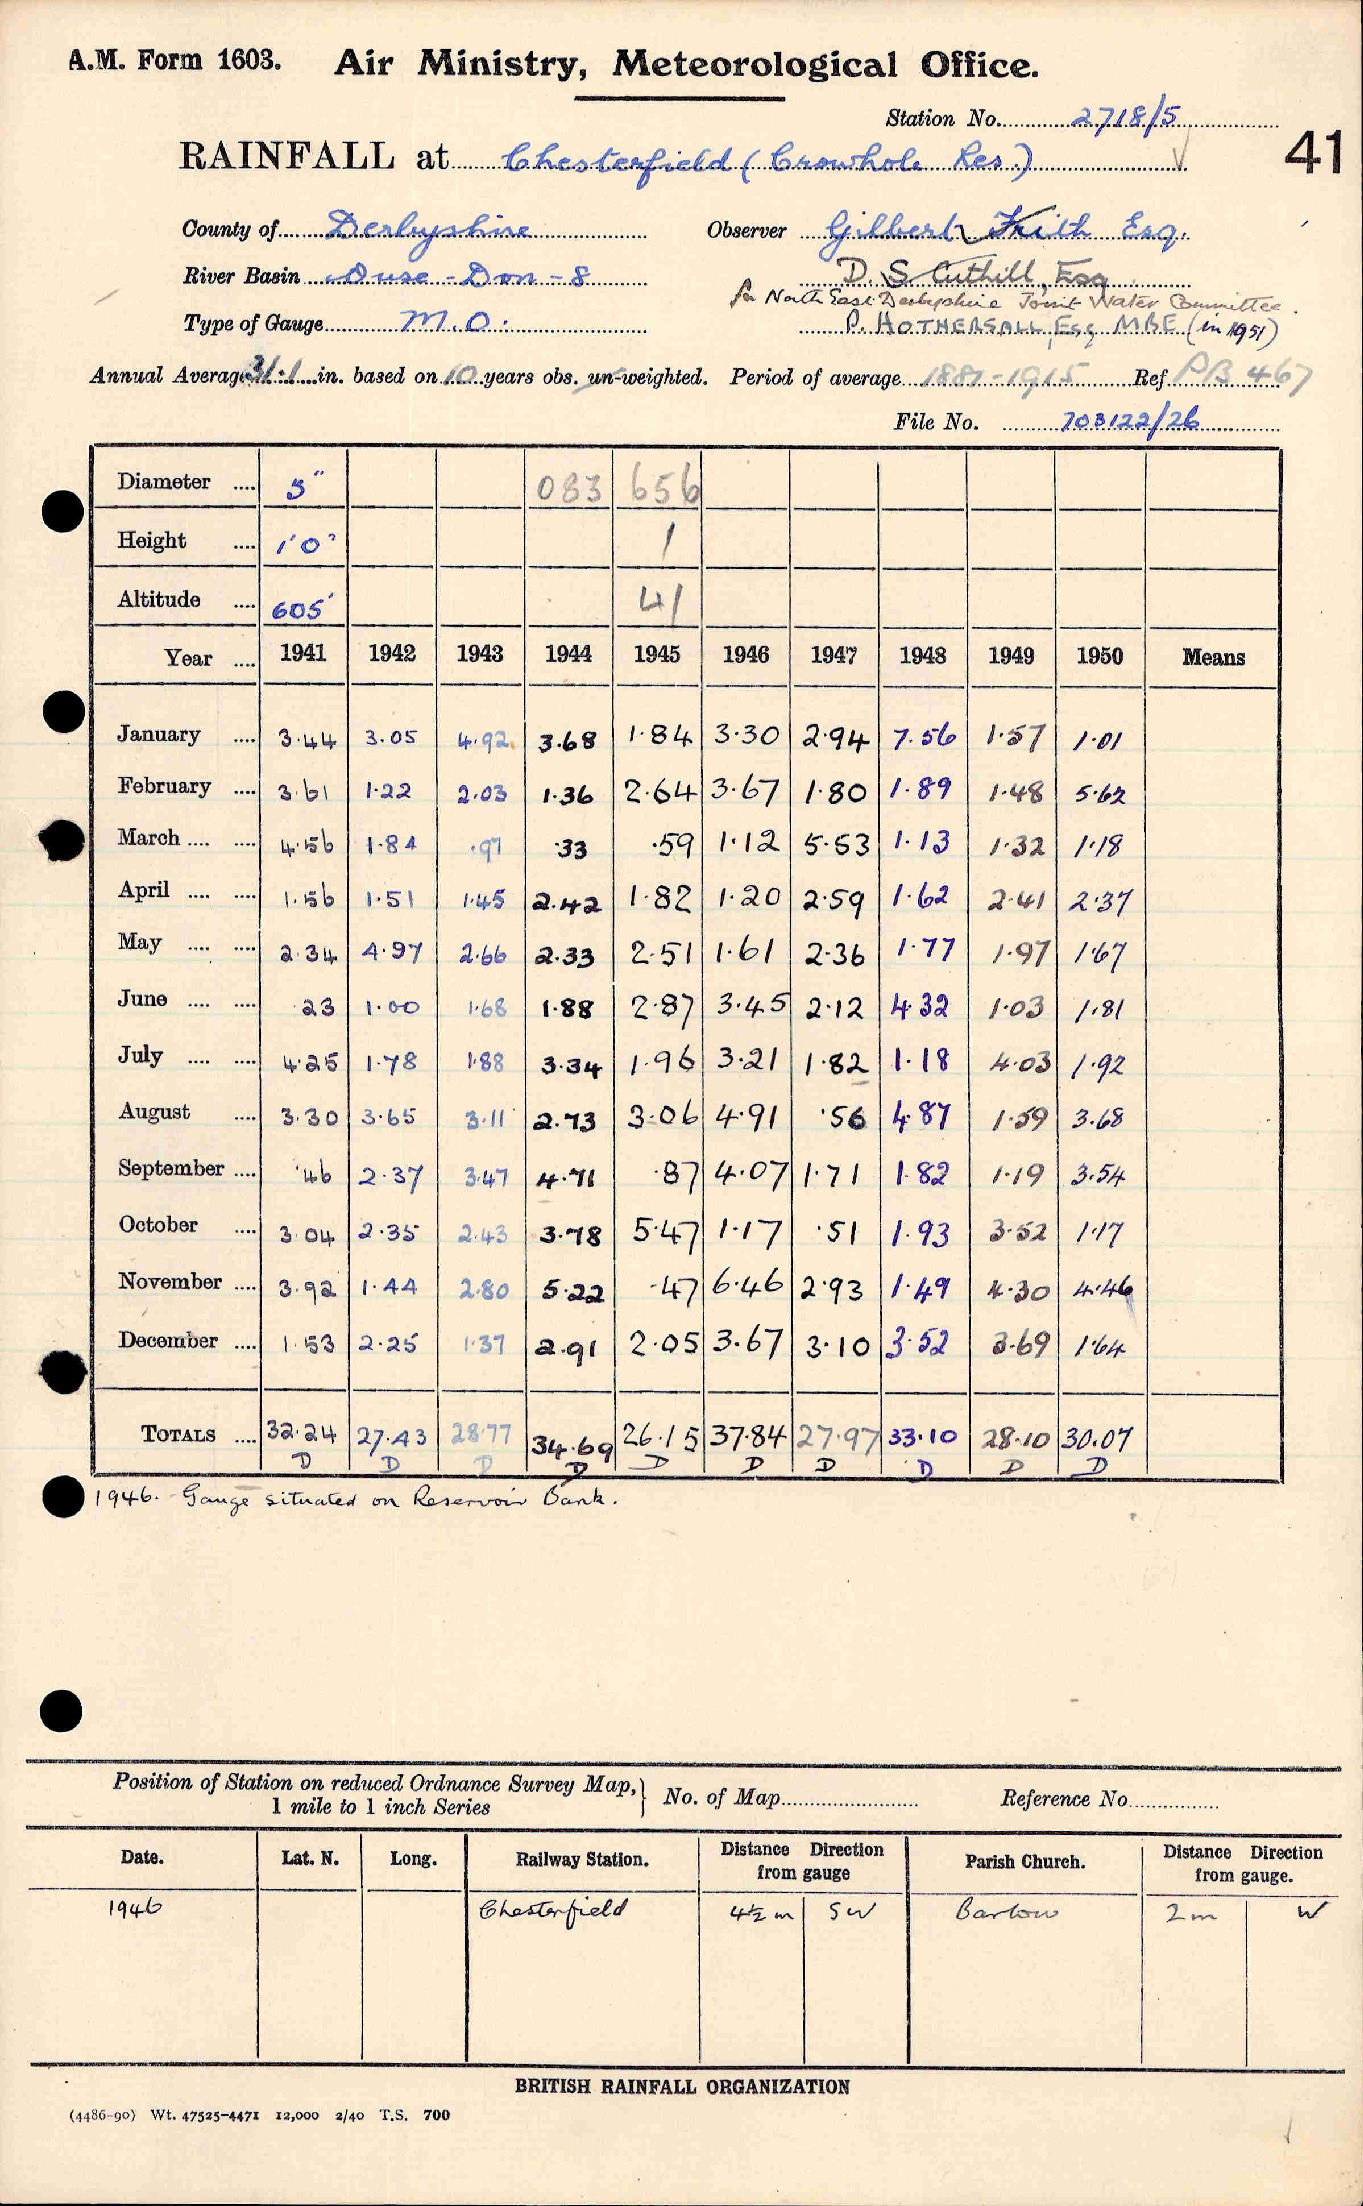 A.M. Form 1603. Air Ministry, Meteorological Office.
Station No. 2718/5
RAINFALL at Chesterfield (Crowhole Res.) 41
County of Derbyshire Observer Gilbert Frith Esq.
River Basin Ouse-Don-8 D. S. Cuthill, Esq
for North East Derbyshire Joint Water Committee.
Type of Gauge M.O. P. HOTHERSALL, Esq MBE (in 1951)
Annual Average 31.1 in. based on 10 years obs. un-weighted. Period of average 1881-1915 Ref PB 467
File No. 703122/26
Diameter .... 5" 083 656
Height .... 1'0" 1
Altitude .... 605' 41
Year .... 1941 1942 1943 1944 1945 1946 1947 1948 1949 1950 Means
January .... 3.44 3.05 4.92 3.68 1.84 3.30 2.94 7.56 1.57 1.01
February .... 3.61 1.22 2.03 1.36 2.64 3.67 1.80 1.89 1.48 5.62
March .... .... 4.56 1.84 .97 .33 .59 1.12 5.53 1.13 1.32 1.18
April .... .... 1.56 1.51 1.45 2.42 1.82 1.20 2.59 1.62 2.41 2.37
May .... .... 2.34 4.97 2.66 2.33 2.51 1.61 2.36 1.77 1.97 1.67
June .... .... .23 1.00 1.68 1.88 2.87 3.45 2.12 4.32 1.03 1.81
July .... .... 4.25 1.78 1.88 3.34 1.96 3.21 1.82 1.18 4.03 1.92
August .... 3.30 3.65 3.11 2.73 3.06 4.91 .56 4.87 1.59 3.68
September .... .46 2.37 3.47 4.71 .87 4.07 1.71 1.82 1.19 3.54
October .... 3.04 2.35 2.43 3.78 5.47 1.17 .51 1.93 3.52 1.17
November .... 3.92 1.44 2.80 5.22 .47 6.46 2.93 1.49 4.30 4.46
December .... 1.53 2.25 1.37 2.91 2.05 3.67 3.10 3.52 3.69 1.64
TOTALS .... 32.24 27.43 28.77 34.69 26.15 37.84 27.97 33.10 28.10 30.07
D D D D D D D D D D
1946. Gauge situated on Reservoir Bank.
Position of Station on reduced Ordnance Survey Map, 1 mile to 1 inch Series } No. of Map Reference No.
Date. Lat. N. Long. Railway Station. Distance Direction from gauge Parish Church. Distance Direction from gauge.
1946 Chesterfield 4½ m SW Barlow 2m W
BRITISH RAINFALL ORGANIZATION
(4486-90) Wt. 47525-4471 12,000 2/40 T.S. 700